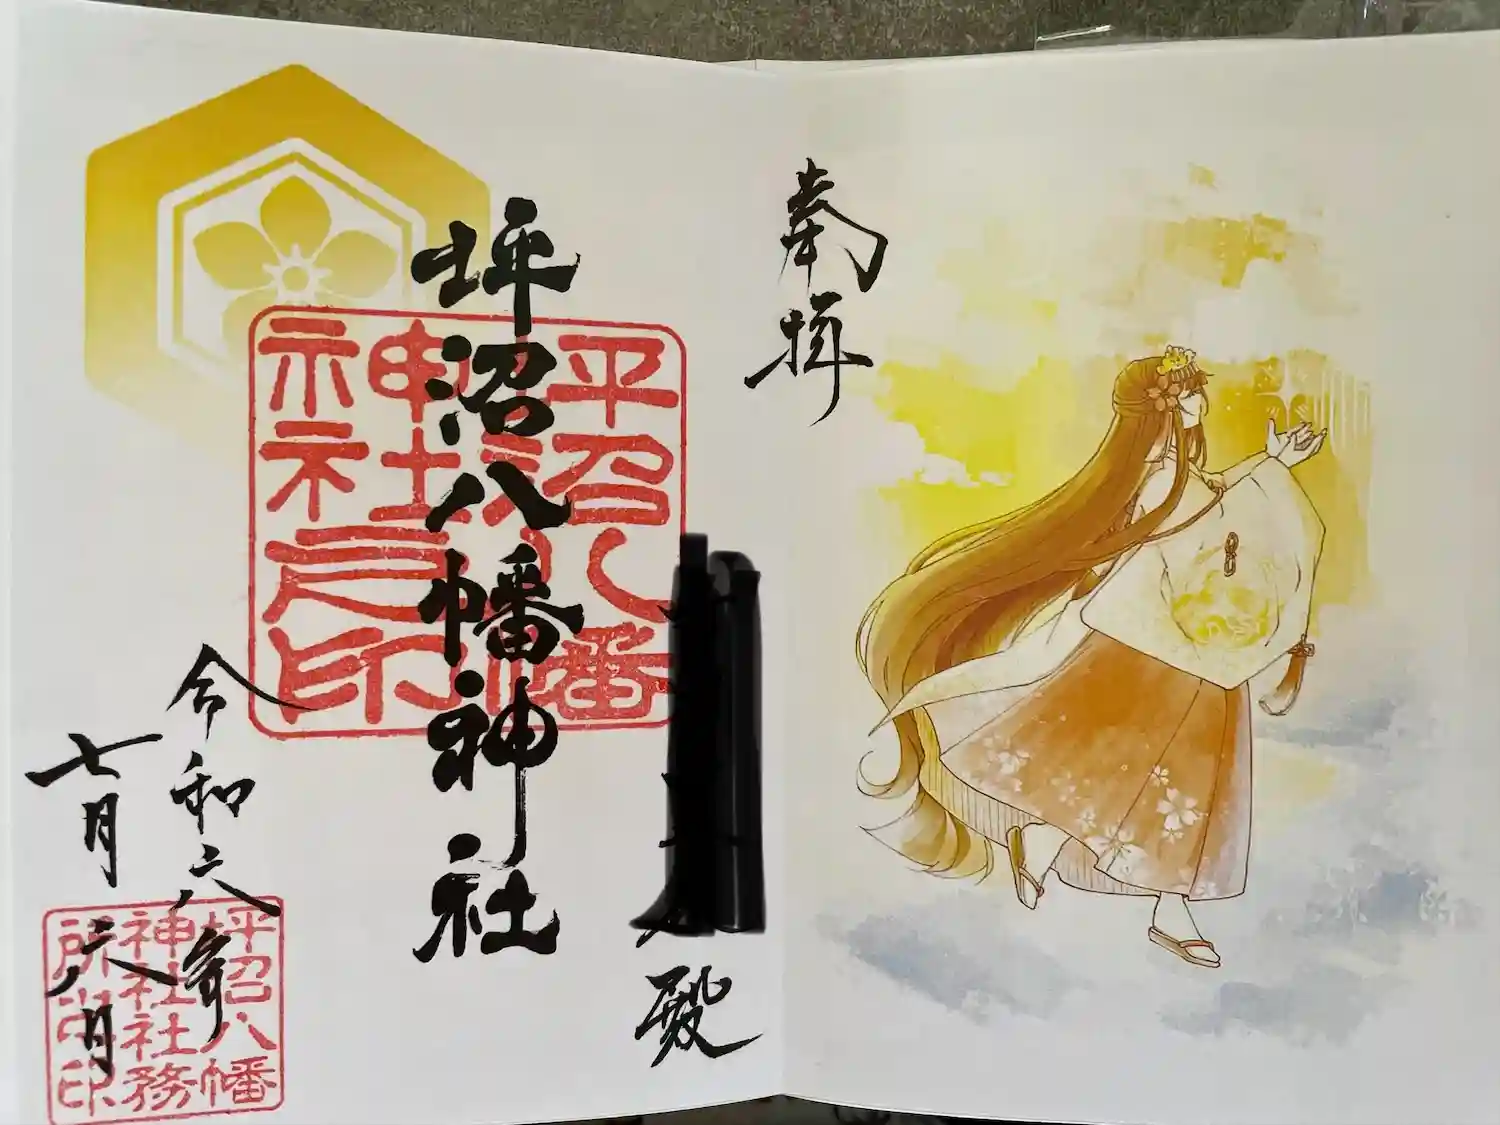 奉拝
殿
坪沼八幡神社
坪沼八幡
神社之印
令和六年
七月六日
坪沼八幡
神社社務
所之印